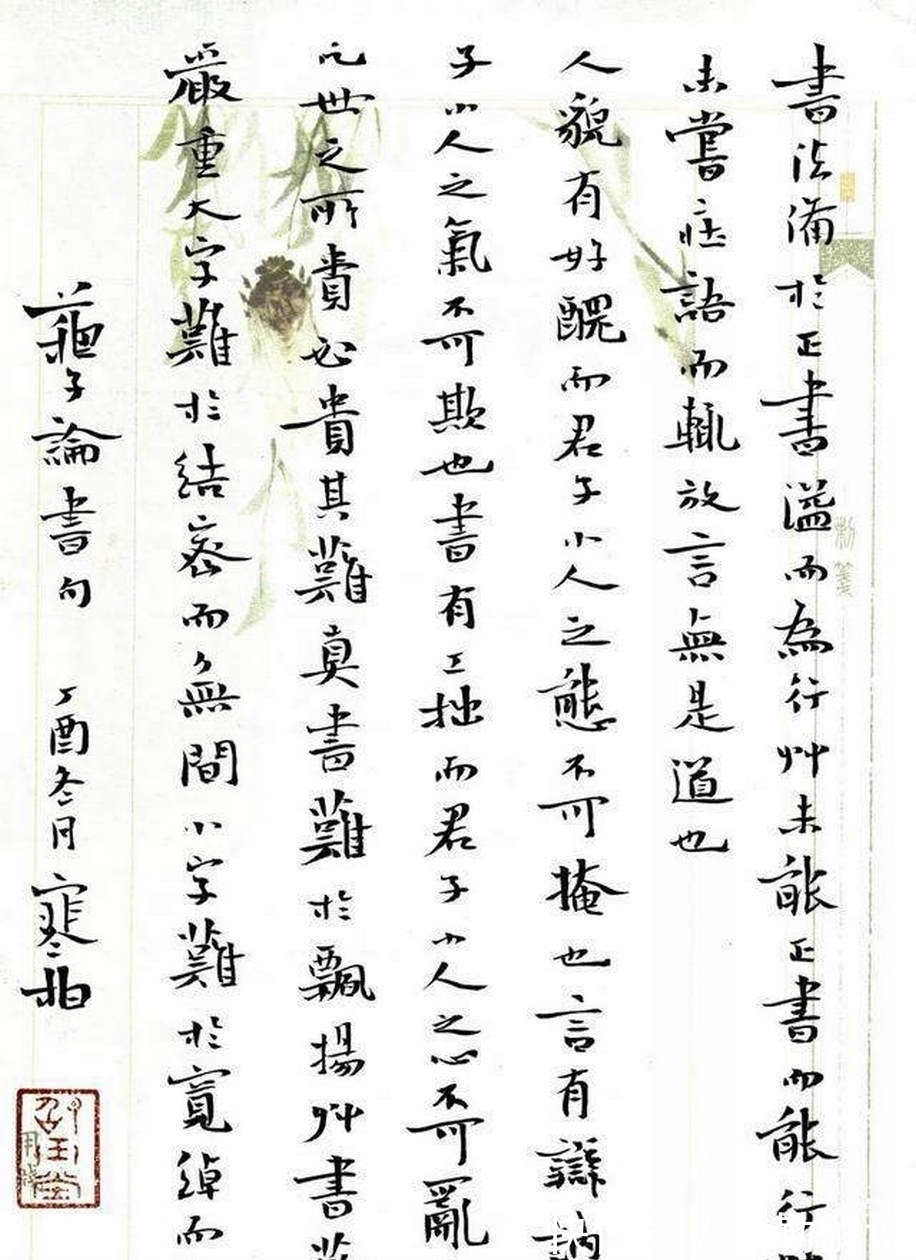 書法備於正書溢而為行艸未能正書而能行
未嘗莊語而輒放言無是道也
人貌有好醜而君子小人之態不可掩也言有辯訥
子小人之氣不可欺也書有工拙而君子小人之心不可亂
凡世之所貴必貴其難真書難於飄揚艸書難
嚴重大字難於結密而無間小字難於寬綽而
蘇子論書句 丁酉冬月寒柏